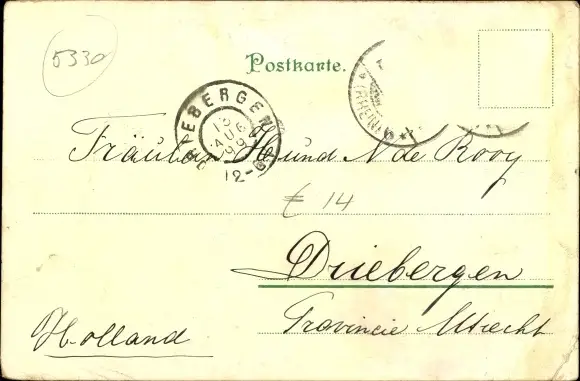 5330
Postkarte.
(RHEIN)
DRIEBERGEN
13
AUG
99
12-
Fräulein H und N de Rooy
€ 14
Driebergen
Provincie Utrecht
Holland